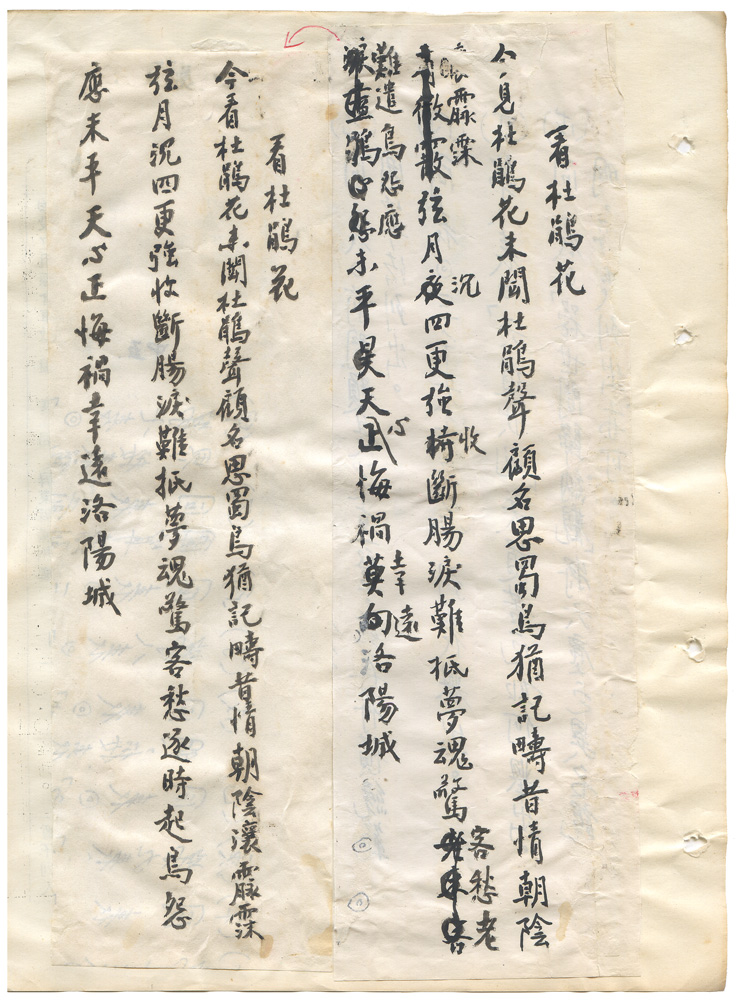 看杜鵑花
今見杜鵑花未聞杜鵑聲顧名思蜀鳥猶記疇昔情朝陰
霢霂
沉
收
客愁老
微霰弦月夜四更強椅斷腸淚難抵夢魂驚
難遣鳥怨應
心
幸遠
怨未平昊天正悔禍莫向洛陽城
看杜鵑花
今看杜鵑花未聞杜鵑聲顧名思蜀鳥猶記疇昔情朝陰瀼霢霂
弦月沉四更強收斷腸淚難抵夢魂驚客愁逐時起鳥怨
應未平天心正悔禍幸遠洛陽城